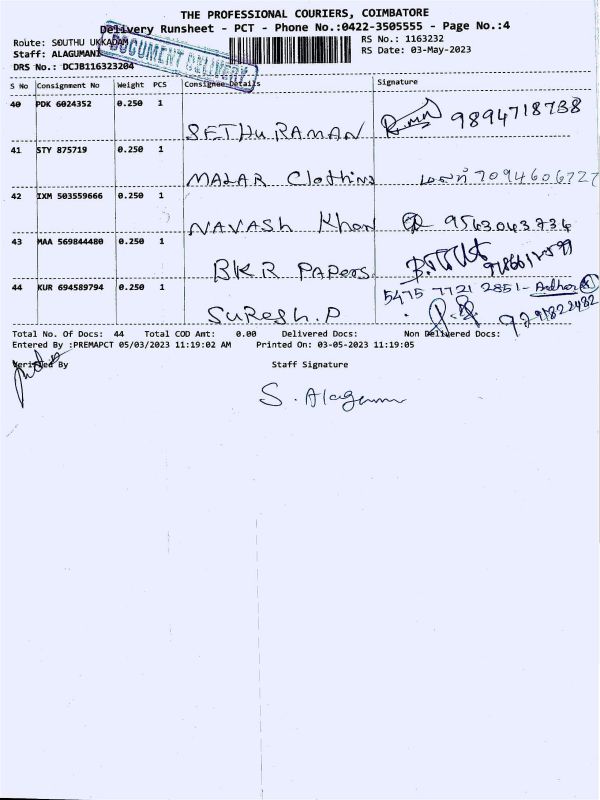 THE PROFESSIONAL COURIERS, COIMBATORE
Delivery Runsheet - PCT - Phone No.:0422-3505555 - Page No.:4
Route: SOUTHU UKKADAM
RS No.: 1163232
Staff: ALAGUMANI
RS Date: 03-May-2023
DRS No.: DCJB116323204
DOCUMENT DELIVERY
S No Consignment No Weight PCS Consignee Details Signature
40 PDK 6024352 0.250 1
SETHU RAMAN 9894718738
41 STY 875719 0.250 1
MALAR Clothing 7094606727
42 IXM 503559666 0.250 1
NAVASH Khan 9563043734
43 MAA 569844480 0.250 1
BKR PAPers
44 KUR 694589794 0.250 1
5475 7721 2851 - Adhar
SuResh.P
Total No. Of Docs: 44 Total COD Amt: 0.00 Delivered Docs: Non Delivered Docs:
Entered By :PREMAPCT 05/03/2023 11:19:02 AM Printed On: 03-05-2023 11:19:05
Verified By Staff Signature